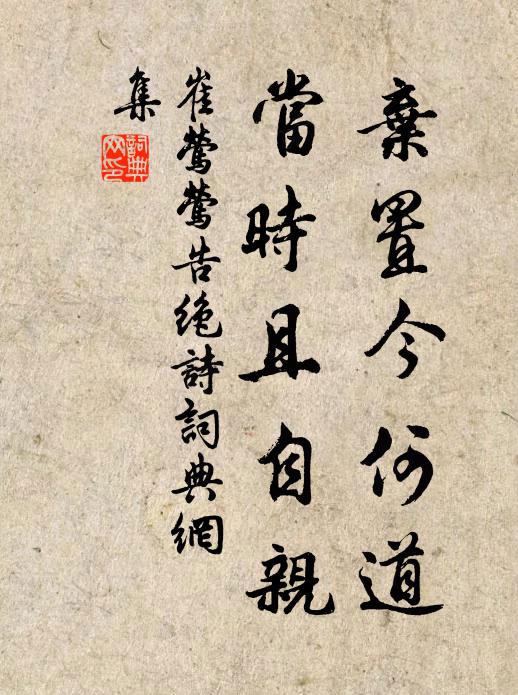 棄置今何道
當時且自親
崔鶯鶯告絕詩詞典網
集
詞典
网印